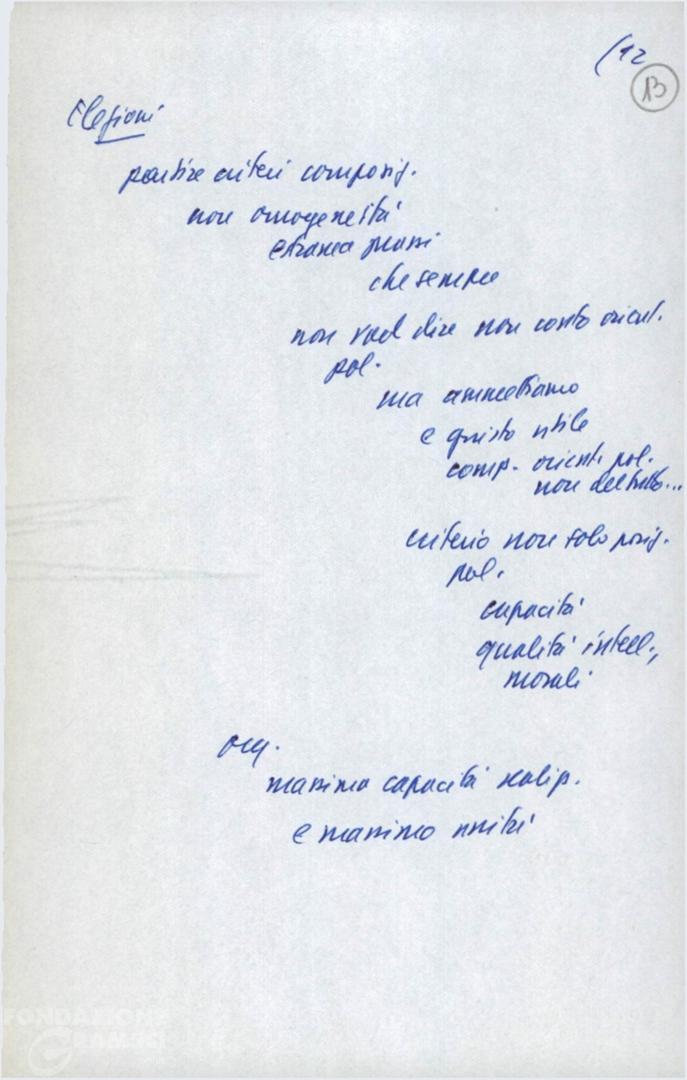 (12
13
Elezioni
partire criteri composiz.
non omogeneità
estranea prassi
che sempre
non vuol dire non conto orient.
pol.
ma ammettiamo
e questo utile
comp. orient. pol.
non del tutto...
criterio non solo posiz.
pol.
capacità
qualità intell.,
morali
org.
massima capacità realizz.
e massimo unità
FONDAZIONE
GRAMSCI